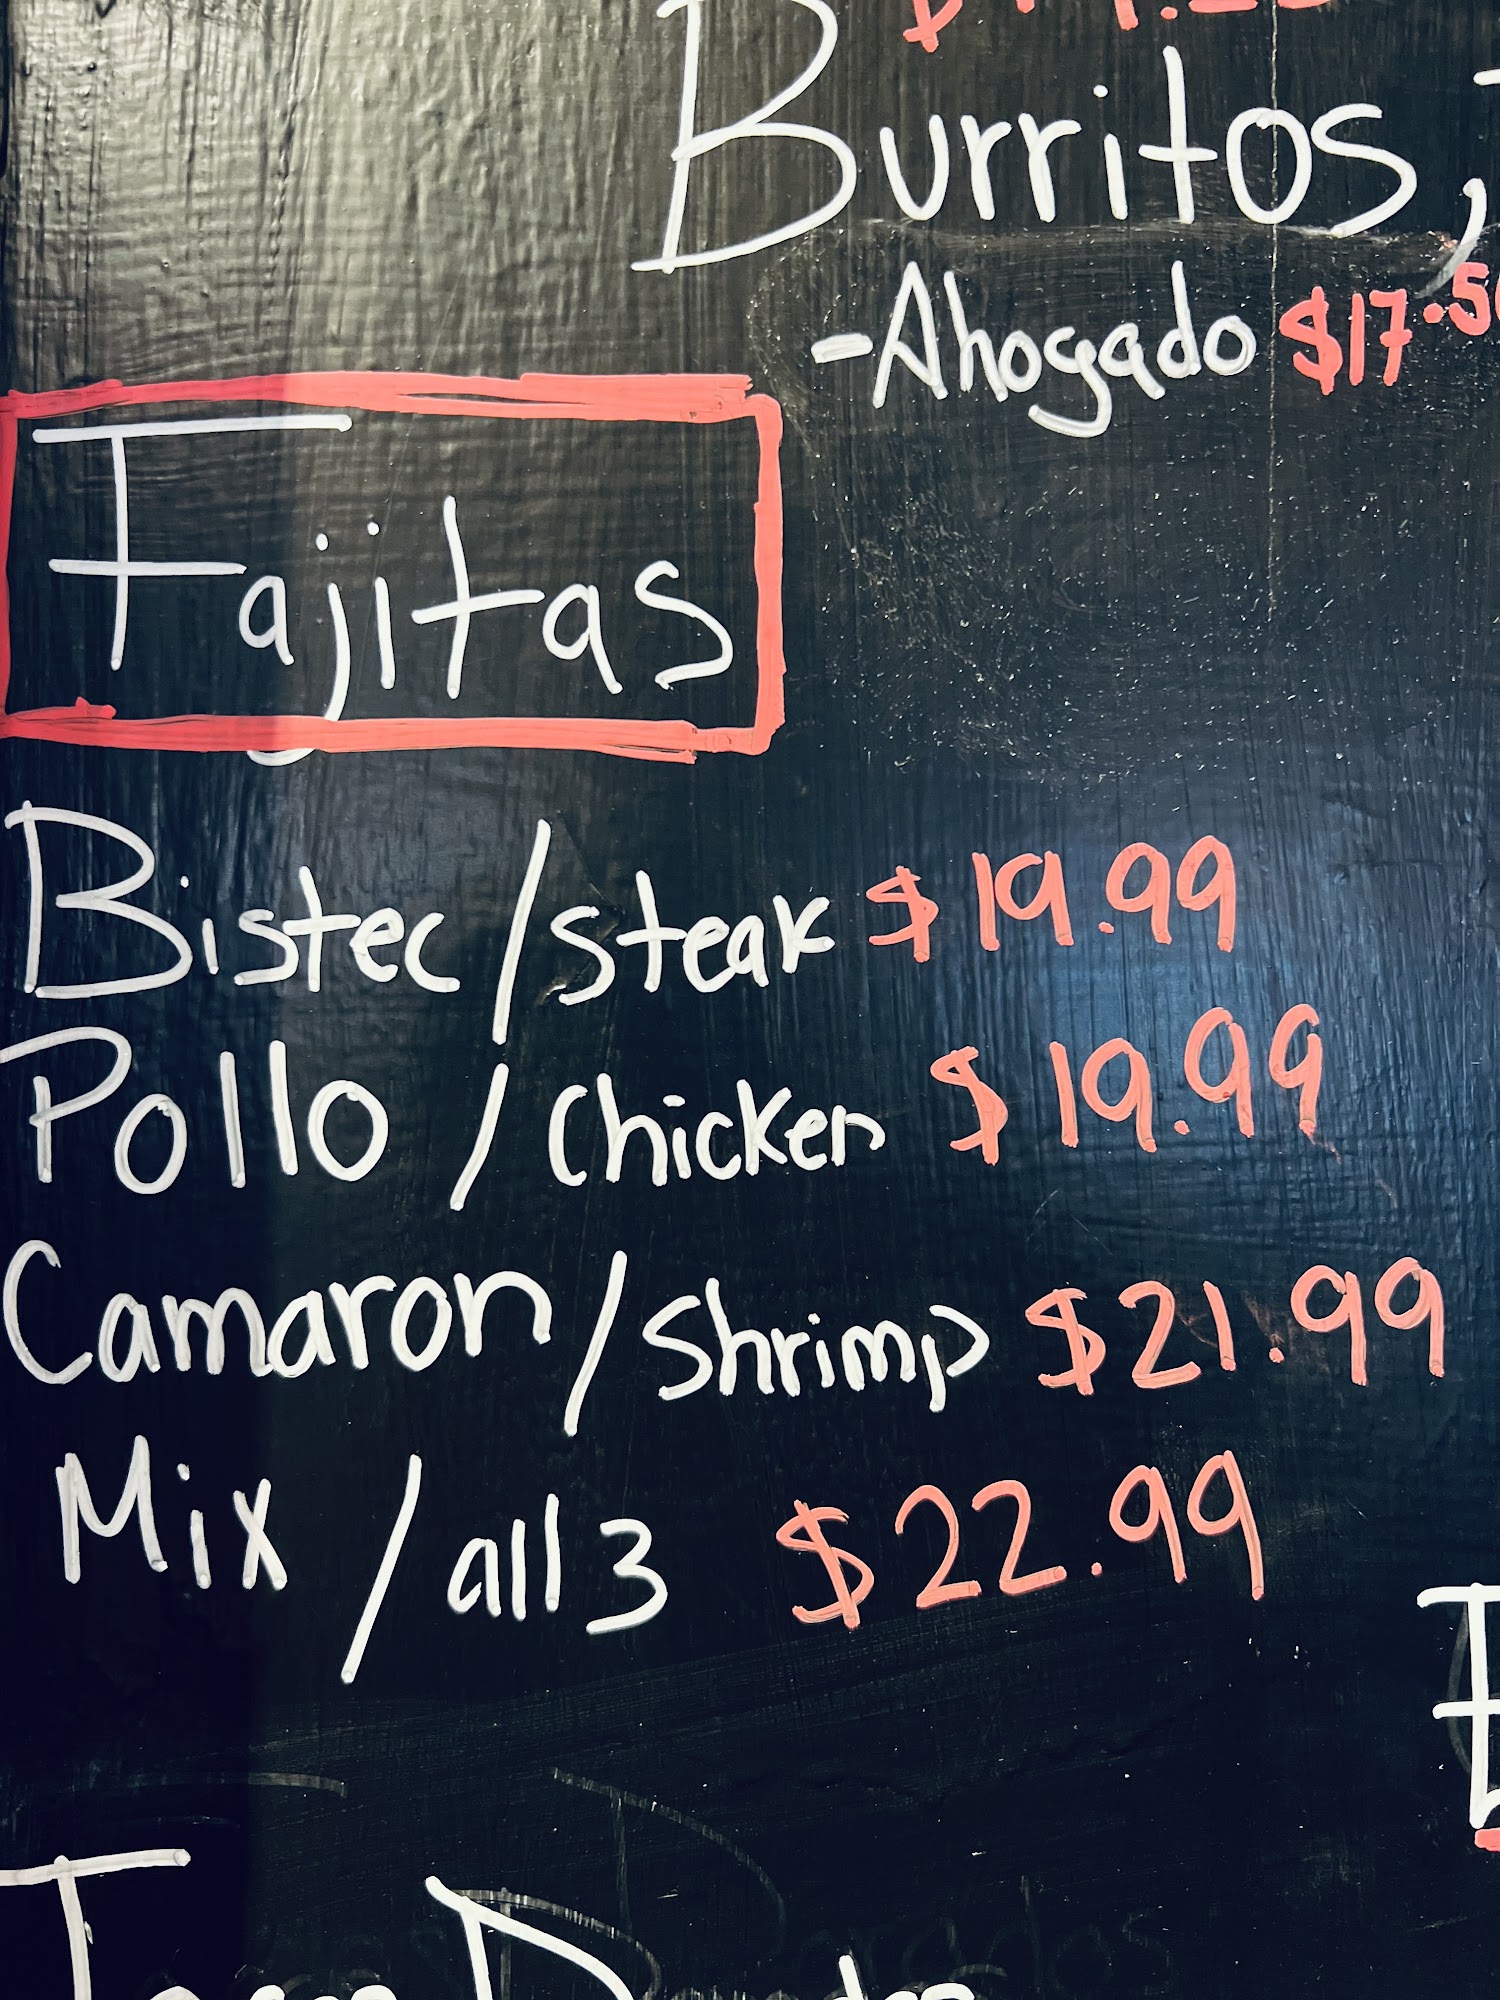 Burritos,
-Ahogado $17.50
Fajitas
Bistec/steak $19.99
Pollo/Chicken $19.99
Camaron/Shrimp $21.99
Mix/all 3 $22.99